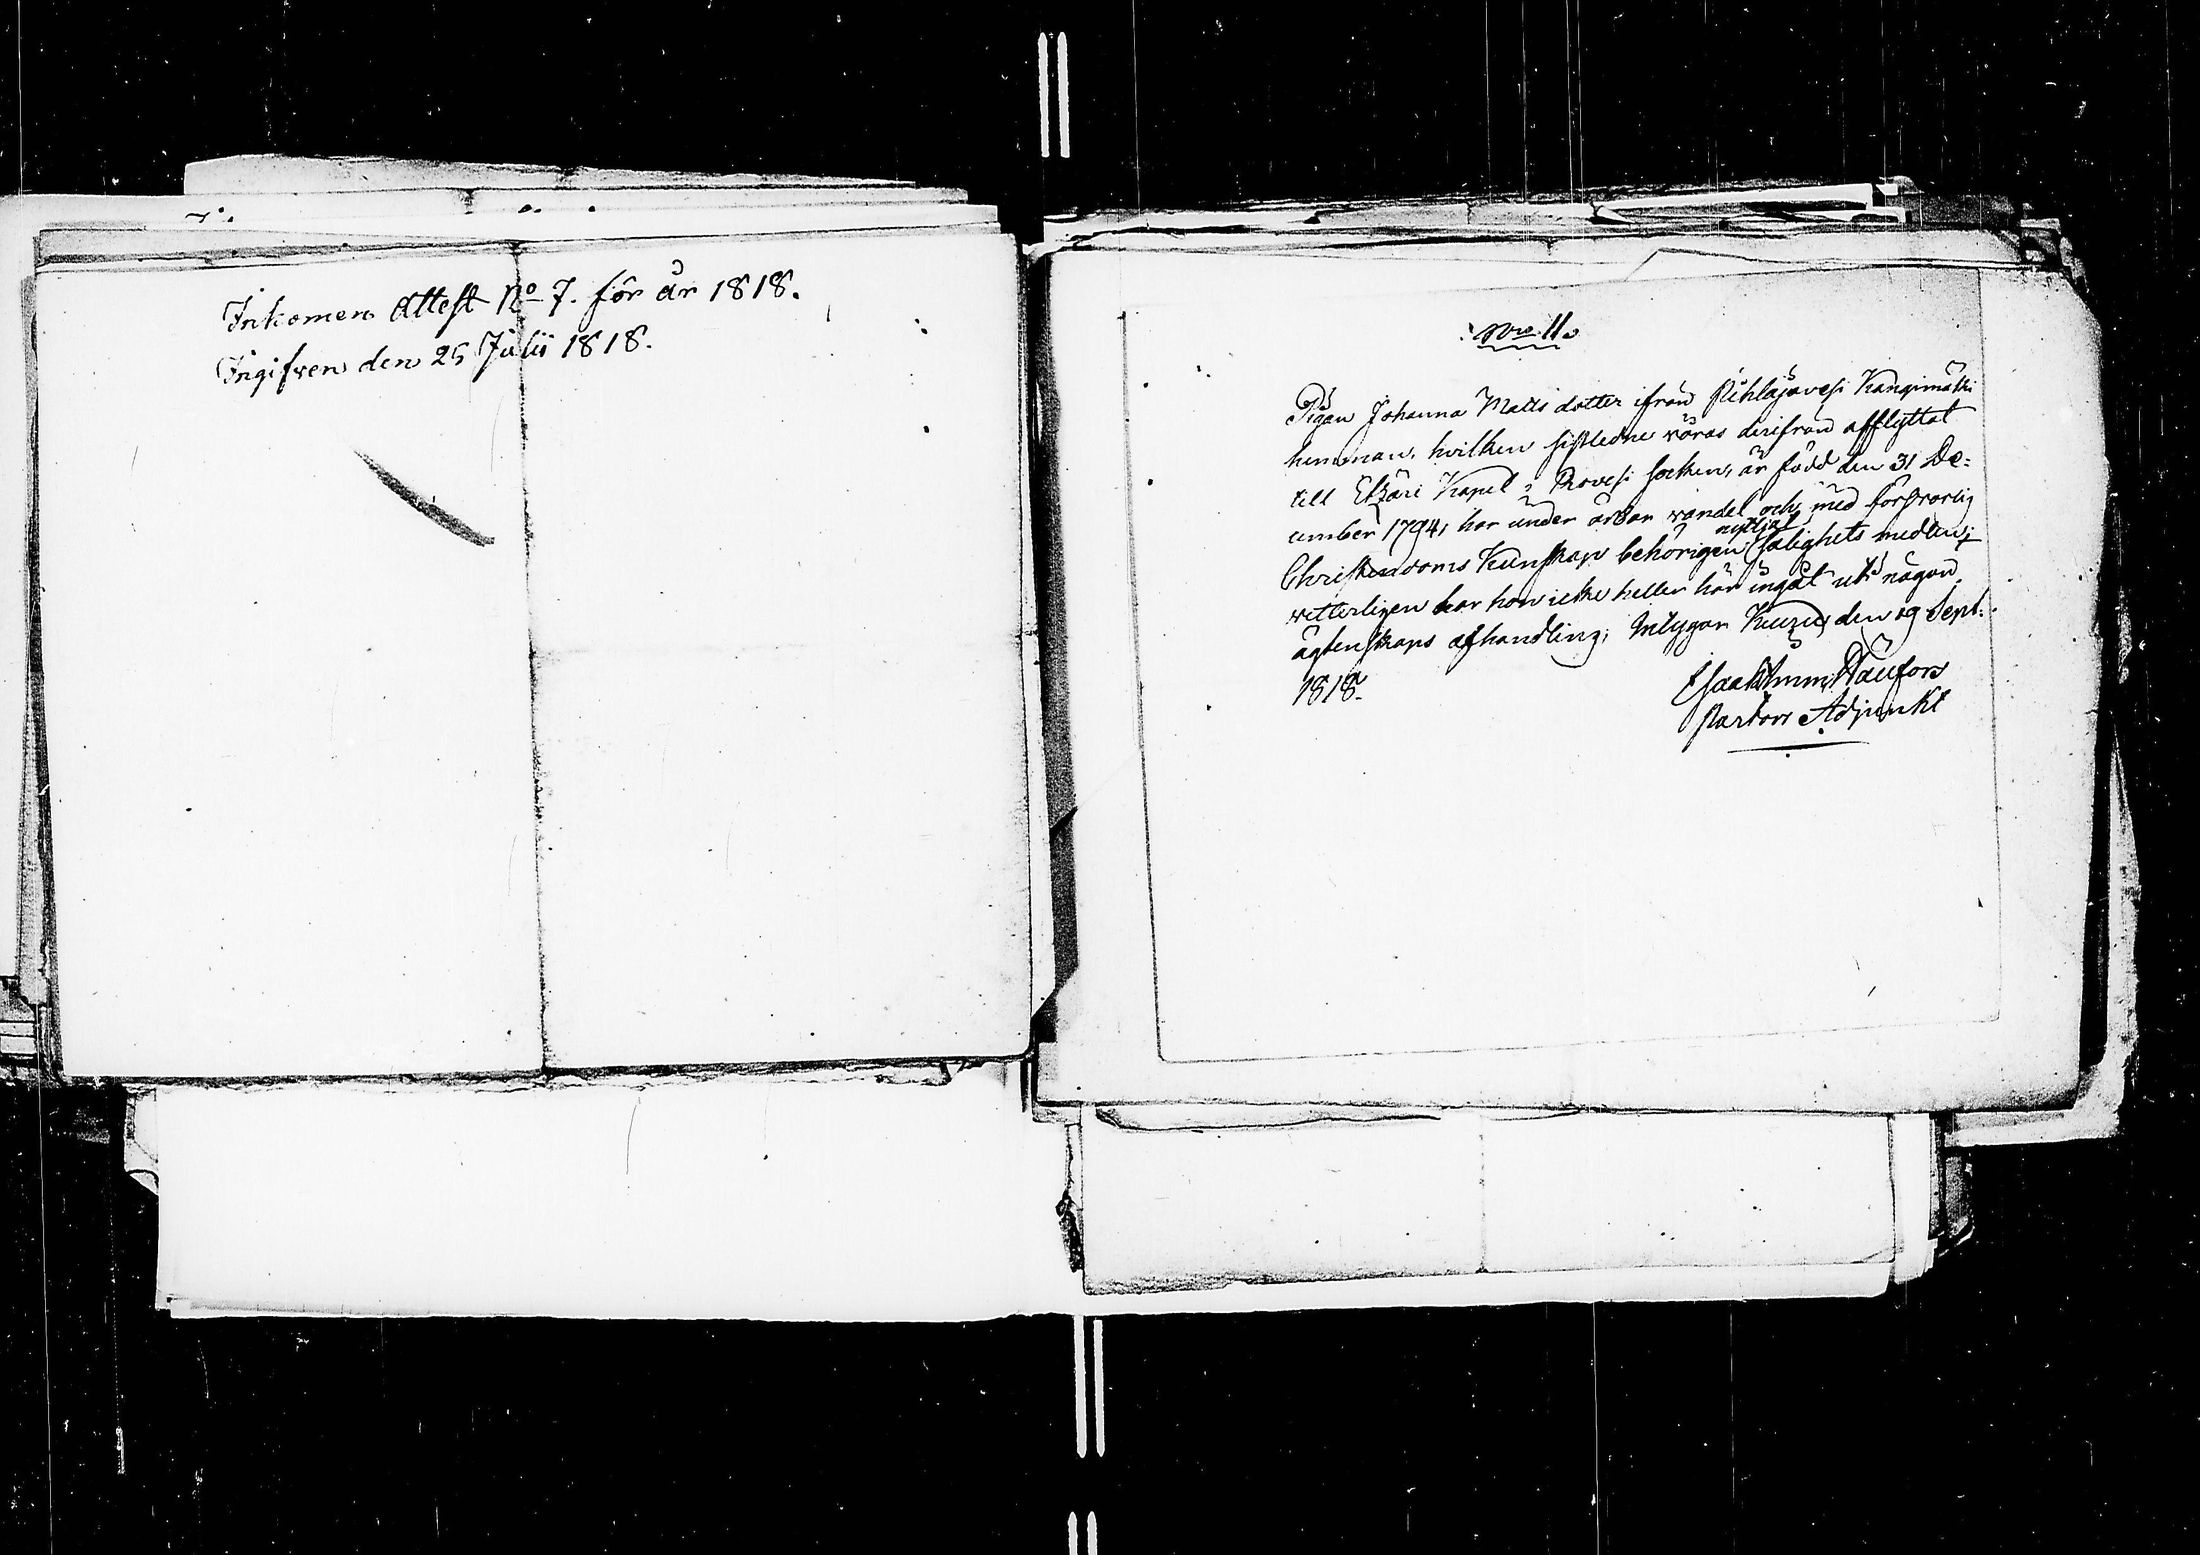 Inkomen Attest No 7. för år 1818.
Ingifven den 25 Julii 1818.
No 11.
Pigan Johanna Matts dotter ifrån Pihlajavesi Kangimäki
hemman, hvilken sistledne våras derifrån afflyttat
till Etzäri Kapel i Rovesi socken, är född den 31 De=
cember 1794, har under ärbar vandel och med försvarlig
Christendoms Kunskap behörigen nyttjat salighets medlen;
vetterligen har hon icke heller här ingåt uti någon
ägtenskaps afhandling; den 19 Sept.
1818.
Isaak
Pastors Adjunkt